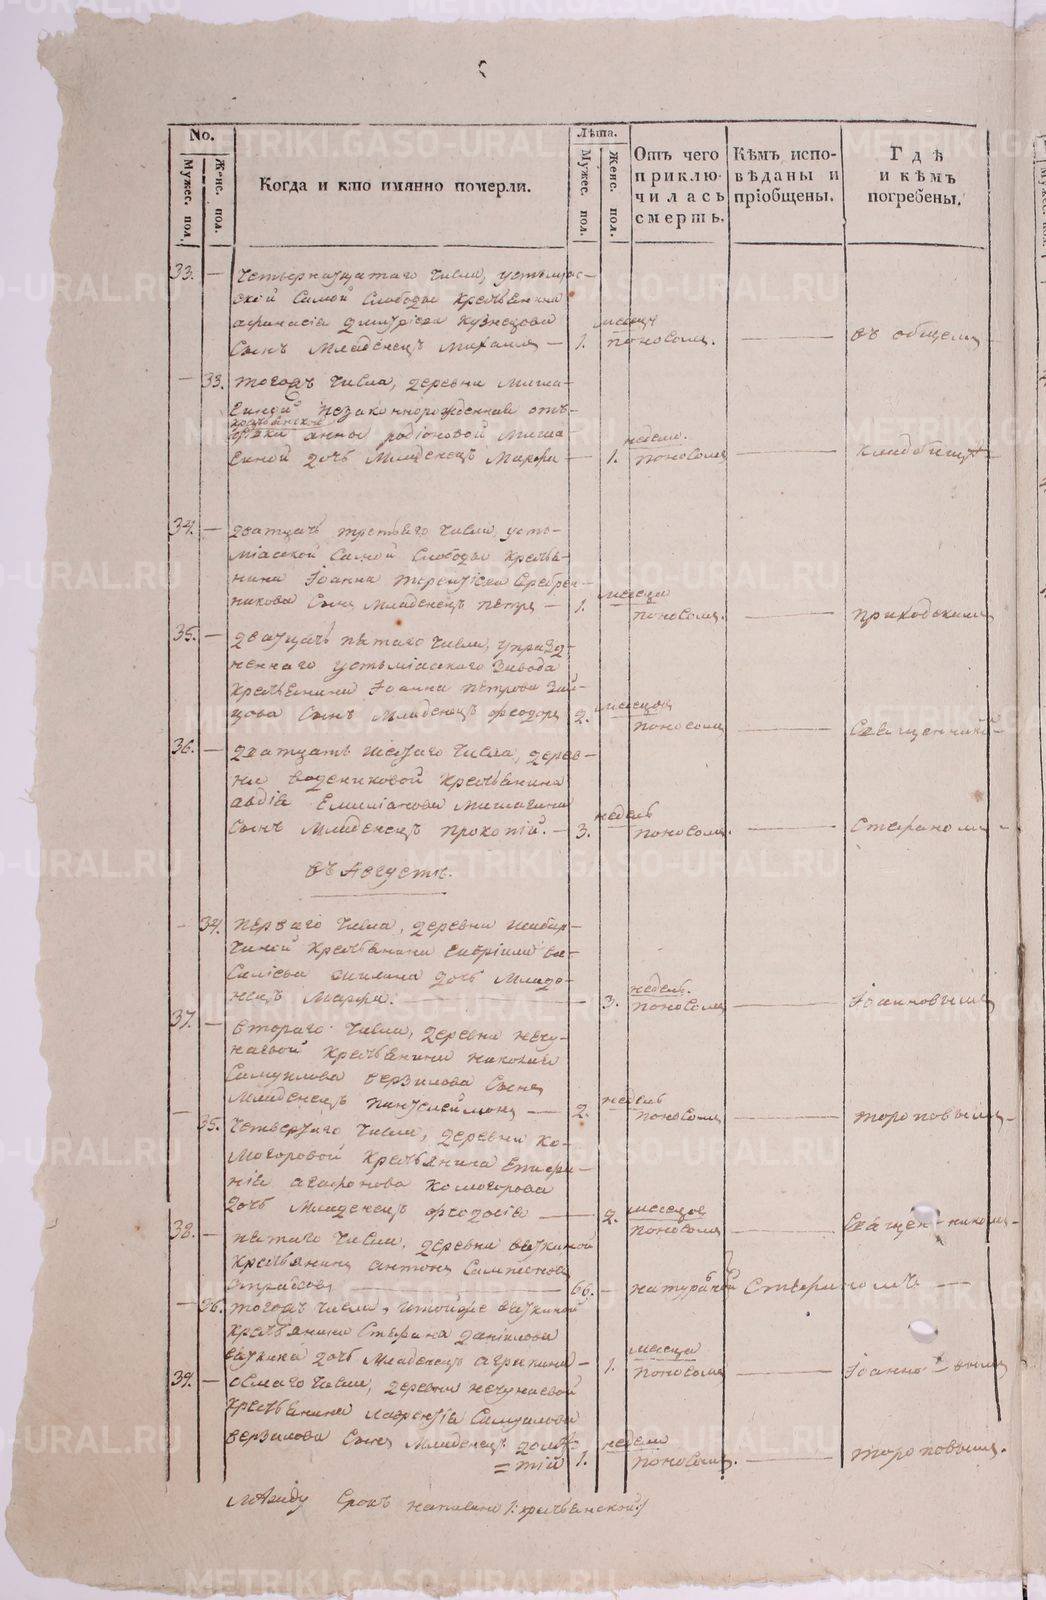 No.
Мужес. пол.
Женс. пол.
Когда и кто имянно померли.
Лѣта.
Мужес. пол.
Женс. пол.
Отъ чего приклю-
чилась
смерть.
Кѣмъ испо-
вѣданы и
пріобщены.
Гдѣ
и кѣмъ
погребены.
33. — Четвернацатаго числа, устьміас-
ской Самой Слободы крестьянина
афанасіа Димитріева Кузнецова
Сынъ младенецъ михаилъ — 1. месяцъ поносомъ. — въ общемъ
— 33. тогожъ числа, деревни
незаконнорожденная отъ
крестьянской
девки анны родіоновой
дочь младенецъ марфа — 1. неделя. поносомъ — кладбищѣ
34. — дватцать третьяго числа, усть-
міасской Самой Слободы крестья-
нина Іоанна терентіева Серебрен-
никова Сынъ младенецъ петръ — 1. месяца поносомъ. — приходскимъ
35. — двацать пятаго числа, упразд-
ненаго устьміасского завода
крестьянина Іоанна петрова Зай-
цова Сынъ младенецъ феодоръ 2. месяцовъ поносомъ — Священникомъ
36. — дватцать шестаго числа, дерев-
ни водениковой крестьянина
авдіа Емиліанова
Сынъ младенецъ прокопій. — 3. недель поносомъ. — Стефаномъ
въ Августе.
— 34. перваго числа, деревни
крестьянина гавріила ва-
силіева дочь младе-
нецъ марфа. — 3. недель. поносомъ — Іоанновымъ
37. — втораго числа, деревни нечу-
наевой крестьянина николая
Самуилова верзилова Сынъ
младенецъ пантелеймонъ — 2. недель поносомъ — тороповымъ
— 35. четвертаго числа, деревни ко-
могоровой крестьянина Епифа-
ніа агафонова комогорова
дочь младенецъ феодосіа — 2. месяцовъ поносомъ — Священникомъ
38. — пятаго числа, деревни вяткиной
крестьянинъ антонъ Сампсоновъ
— 66. — натуральной Стефаномъ —
— 36. тогожъ числа, итойже вяткиной
крестьянина Стефана даніилова
вяткина дочь младенецъ агрипина — 1. месяца поносомъ — Іоанновымъ
39. — осмаго числа, деревни нечунаевой
крестьянина лаврентіа Самуилова
верзилова Сынъ младенецъ доме-
=тій 1. неделя поносомъ. — тороповымъ.
между строкъ написано /: крестьянской:/